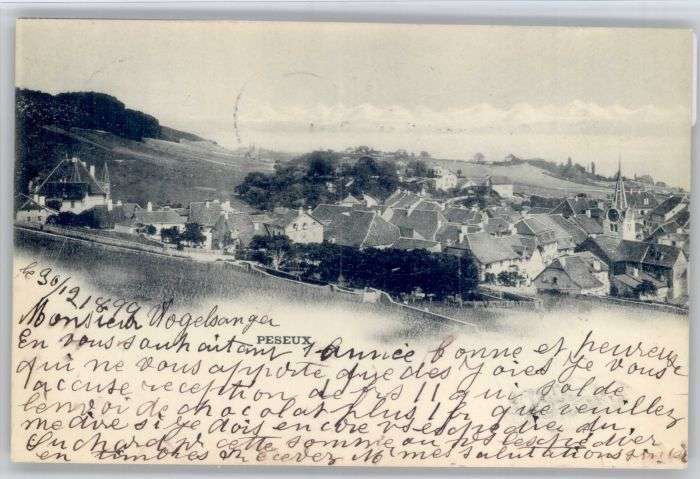 le 30/12 1899
Monsieur Vogelsanger
PESEUX
En vous souhaitant 1 Année bonne et heureuse
qui ne vous apporte que des joies Je vous
accuse réception de frs 11 qui solde
lenvoi de chocolat plus 1 fr que veuillez
me dire si je dois encore vs expédier du
Suchard pr cette somme ou ps expédier
en timbres Recevez M mes salutations